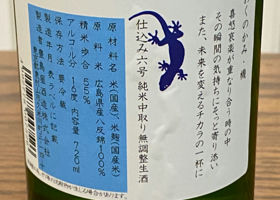 わくのかみ・機
喜怒哀楽が重なり合う時の中
その瞬間の気持ちにそっと寄り添い
また、未来を変えるチカラの一杯に
仕込み六号 純米中取り無調整生酒
原材料名 米(国産)、米麹(国産米)
原料米 広島県産八反錦100%
精米歩合 55%
アルコール分 16度 内容量 720ml
保存方法 要冷蔵
製造年月 表ラベルに記載